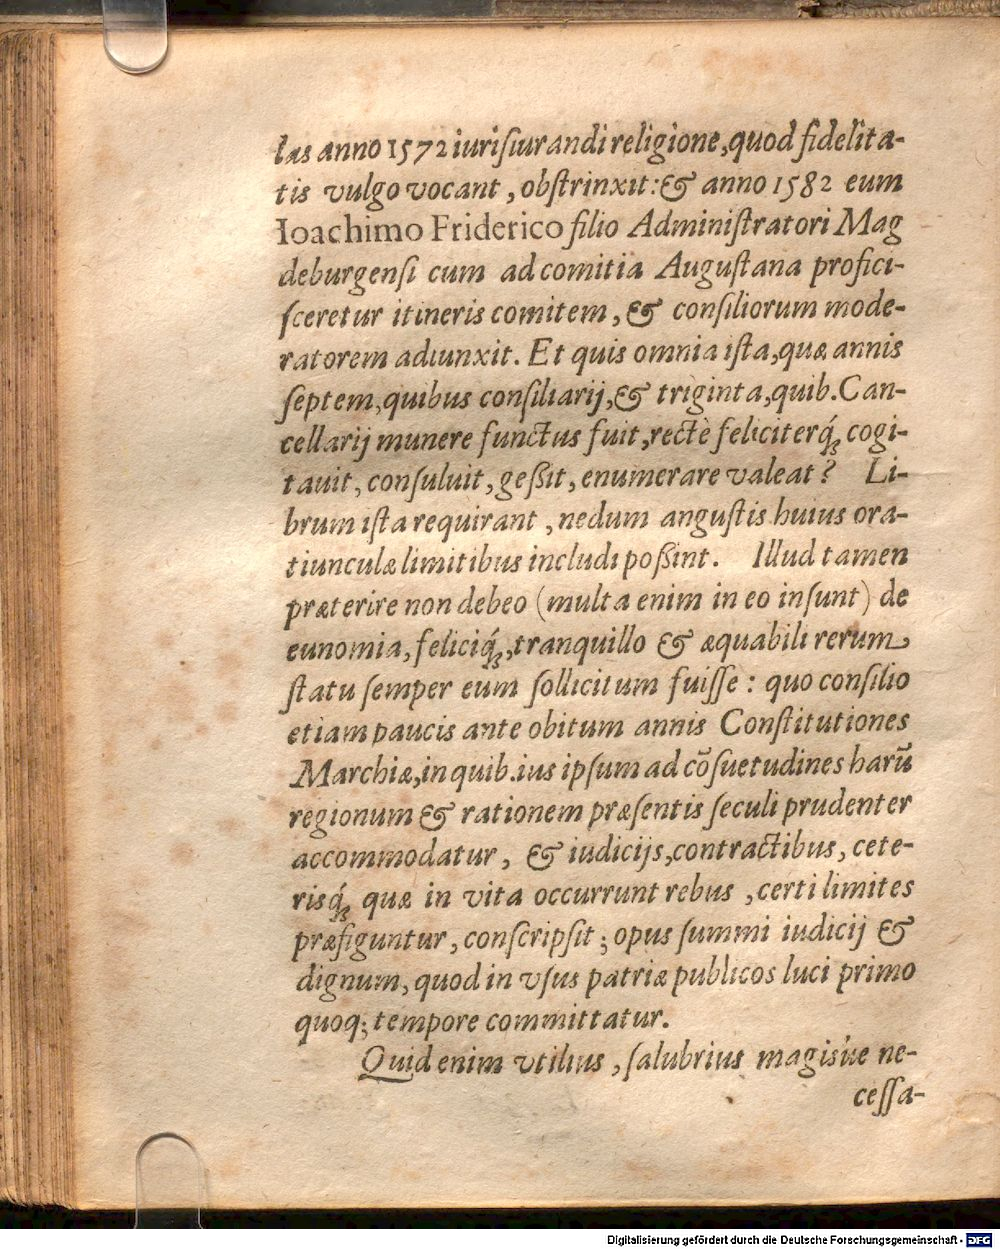 las anno 1572 iurisiurandi religione, quod fidelita-
tis vulgo vocant, obstrinxit: & anno 1582 eum
Ioachimo Friderico filio Administratori Mag
deburgensi cum ad comitia Augustana profici-
sceretur itineris comitem, & consiliorum mode-
ratorem adiunxit. Et quis omnia ista, quæ annis
septem, quibus consiliarij, & triginta, quib. Can-
cellarij munere functus fuit, rectè feliciterq́; cogi-
tauit, consuluit, geßit, enumerare valeat? Li-
brum ista requirant, nedum angustis huius ora-
tiunculæ limitibus includi poßint. Illud tamen
præterire non debeo (multa enim in eo insunt) de
eunomia, feliciq́;, tranquillo & æquabili rerum
statu semper eum sollicitum fuisse: quo consilio
etiam paucis ante obitum annis Constitutiones
Marchiæ, in quib. ius ipsum ad cōsuetudines harū
regionum & rationem præsentis seculi prudenter
accommodatur, & iudicijs, contractibus, cete-
risq́; quæ in vita occurrunt rebus, certi limites
præfiguntur, conscripsit; opus summi iudicij &
dignum, quod in vsus patriæ publicos luci primo
quoq; tempore committatur.
Quid enim vtilius, salubrius magisúe ne-
cessa-
Digitalisierung gefördert durch die Deutsche Forschungsgemeinschaft - DFG